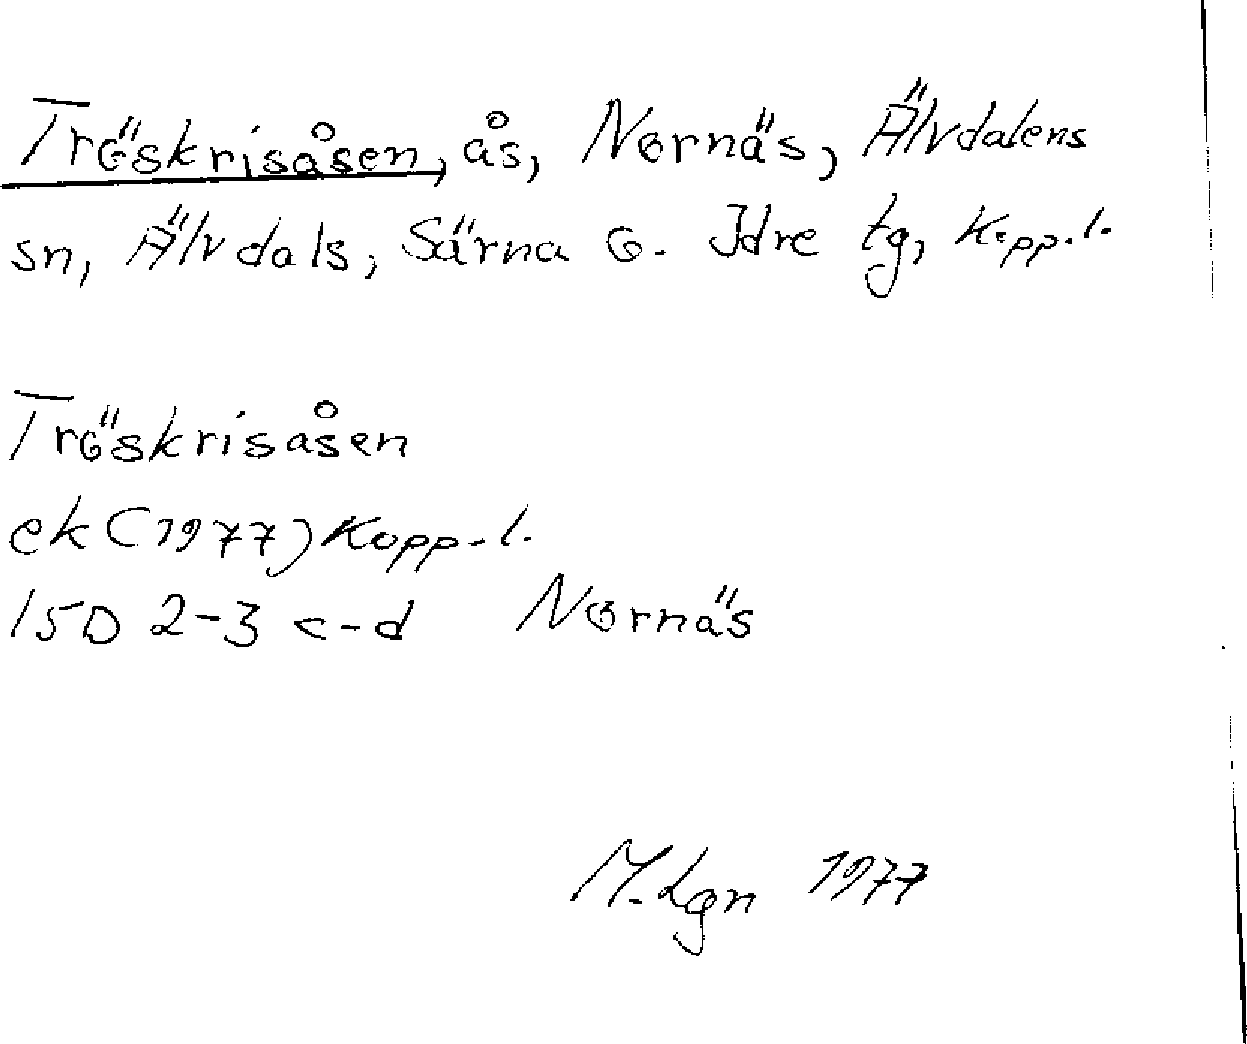 Tröskrisåsen, ås, Nornäs, Älvdalens
sn, Älvdals, Särna o. Idre tg, Kopp.l.
Tröskrisåsen
ek (1977) Kopp.l.
15D 2-3 c-d Nornäs
M.Lgn 1977